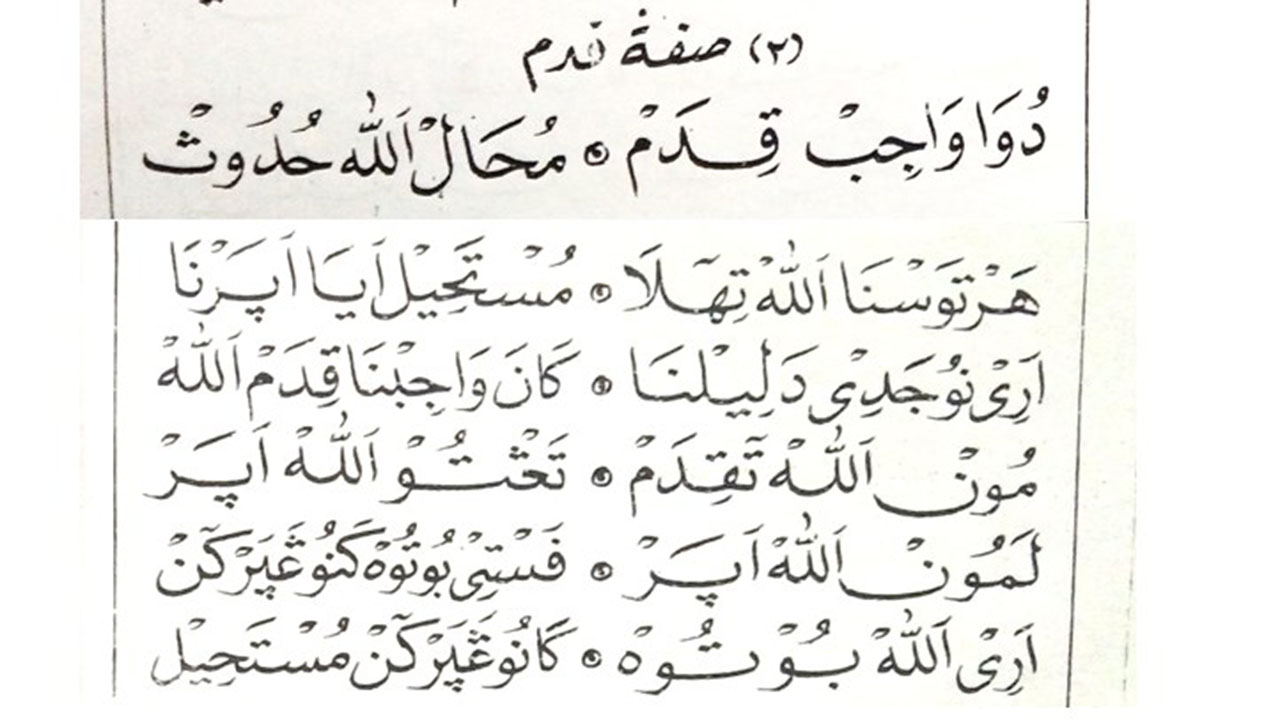 (٢) صفة قدم
دُوَا وَاجِبْ قِدَمْ ۞ مُحَالْ اَللّٰه حُدُوثْ
هَرْتَوْسْنَا اَللّٰهْ تِهْلَا ۞ مُسْتَحِيْل اَيَا اَپَرْنَا
اَرِيْ نُوْجَدِيْ دَلِيْلْنَا ۞ كَانَ وَاجِبْنَا قِدَمْ اَللّٰهْ
مُوْنْ اَللّٰهْ تَقِدَمْ ۞ تَڠْتُوْ اَللّٰهْ اَپَرْ
لَمُوْنْ اَللّٰهْ اَپَرْ ۞ فَسْتِيْ بُوْتُوْهْ كَنُوْ ڠَپَرْكَنْ
اَرِيْ اَللّٰهْ بُوْتُوْهْ ۞ كَانُوْ ڠَپَرْكَنْ مُسْتَحِيْل